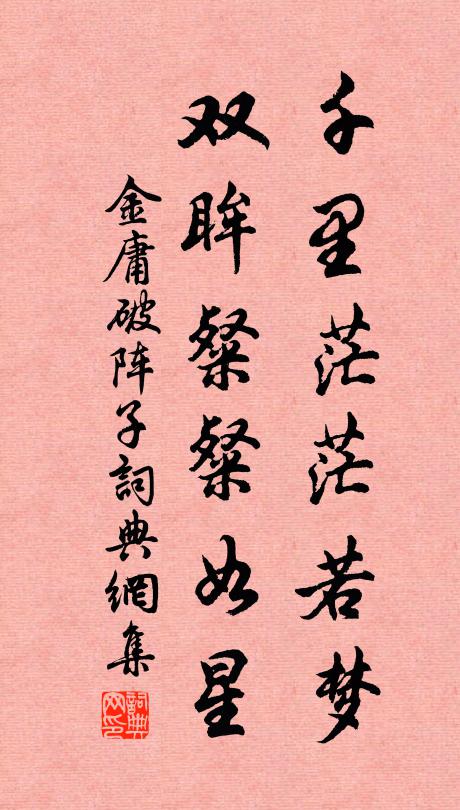 千里茫茫若梦
双眸粲粲如星
金庸破阵子詞典網集
詞典
网印